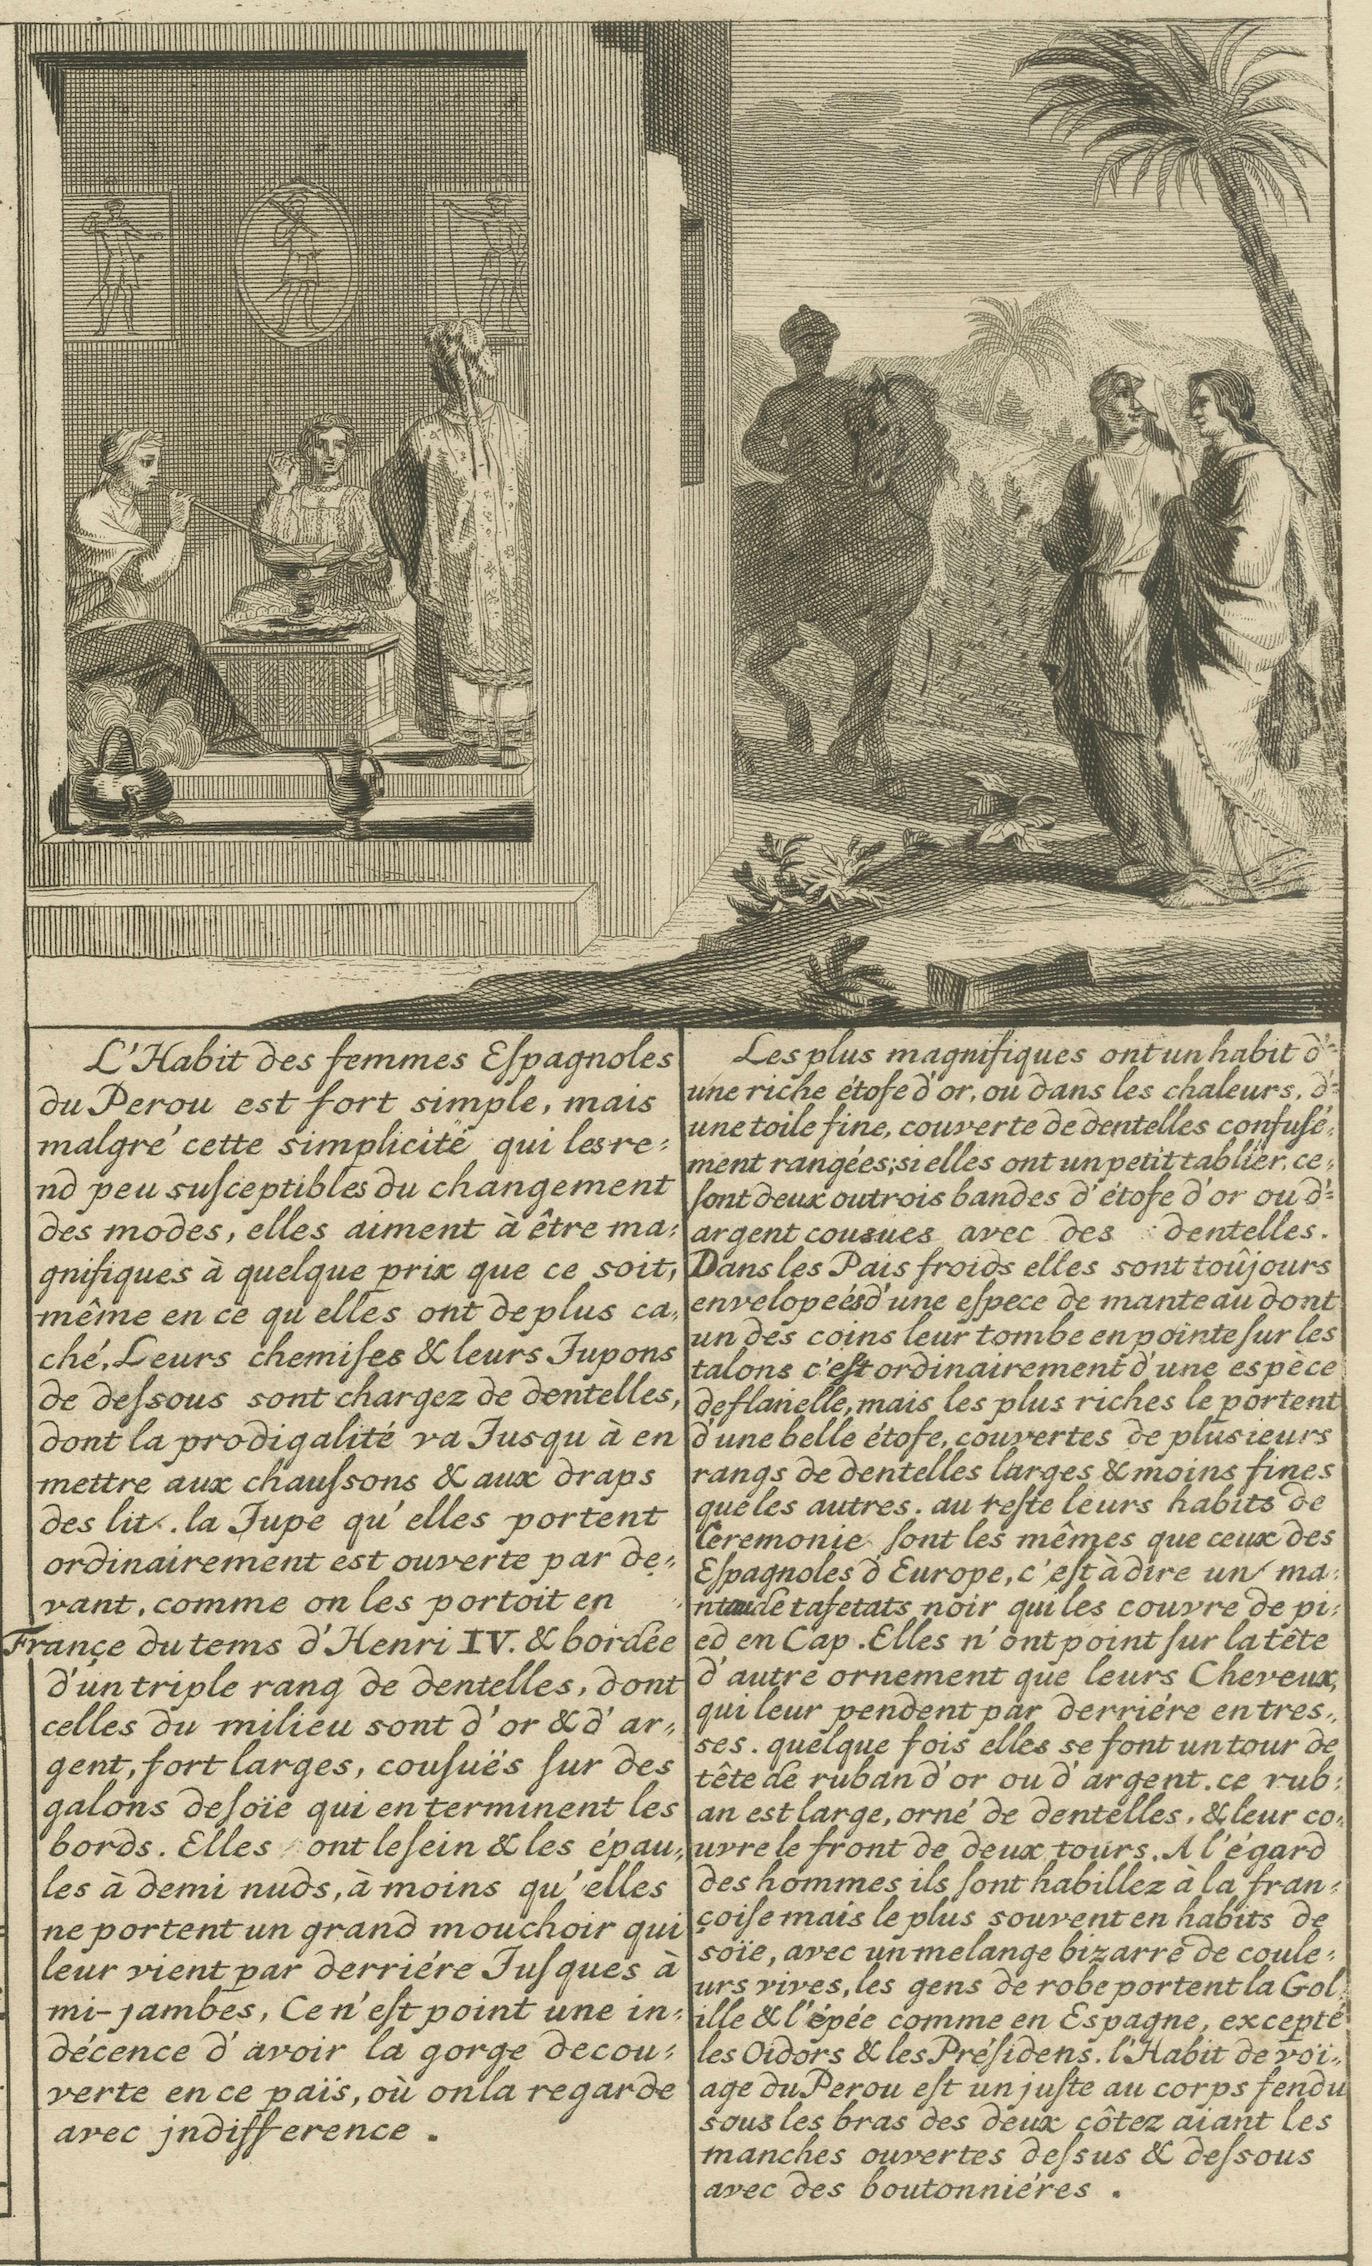 L'Habit des femmes Eſpagnoles
du Perou est fort simple, mais
malgré cette simplicité qui les re⸗
nd peu suſceptibles du changement
des modes, elles aiment à être ma⸗
gnifiques à quelque prix que ce soit,
même en ce qu'elles ont de plus ca⸗
ché. Leurs chemiſes & leurs Jupons
de deſsous sont chargez de dentelles,
dont la prodigalité va Jusqu'à en
mettre aux chauſsons & aux draps
des lit. la Jupe qu'elles portent
ordinairement est ouverte par de⸗
vant, comme on les portoit en
France du tems d'Henri IV. & bordée
d'un triple rang de dentelles, dont
celles du milieu sont d'or & d'ar⸗
gent, fort larges, couſuës ſur des
galons de ſoïe qui en terminent les
bords. Elles ont le ſein & les épau⸗
les à demi nuds, à moins qu'elles
ne portent un grand mouchoir qui
leur vient par derriére Juſques à
mi-jambes, Ce n'eſt point une in⸗
décence d'avoir la gorge decou⸗
verte en ce païs, où on la regarde
avec jndifference.
Les plus magnifiques ont un habit d'⸗
une riche étofe d'or, ou dans les chaleurs, d'⸗
une toile fine, couverte de dentelles confuſé⸗
ment rangées; si elles ont un petit tablier, ce⸗
ſont deux ou trois bandes d'étofe d'or ou d'⸗
argent cousues avec des dentelles.
Dans les Pais froids elles sont toûjours
envelopeés d'une eſpece de manteau dont
un des coins leur tombe en pointe ſur les
talons c'eſt ordinairement d'une espèce
de flanelle, mais les plus riches le portent
d'une belle étofe, couvertes de plusieurs
rangs de dentelles larges & moins fines
que les autres. au reſte leurs habits de
Ceremonie ſont les mêmes que ceux des
Eſpagnoles d'Europe, c'eſt à dire un ma⸗
de tafetats noir qui les couvre de pi⸗
ed en Cap. Elles n'ont point ſur la tête
d'autre ornement que leurs Cheveux,
qui leur pendent par derriére en tres⸗
ses. quelque fois elles se font un tour de
tête de ruban d'or ou d'argent. ce rub⸗
an est large, orné de dentelles, & leur co⸗
uvre le front de deux tours. A l'égard
des hommes ils ſont habillez à la fran⸗
çoiſe mais le plus souvent en habits de
soïe, avec un melange bizarre de coule⸗
urs vives, les gens de robe portent la Gol⸗
ille & l'épée comme en Espagne, excepté
les Oidors & les Préſidens. l'Habit de voi⸗
age du Perou eſt un juſte au corps fendu
sous les bras des deux côtez aiant les
manches ouvertes deſsus & deſsous
avec des boutonniéres.